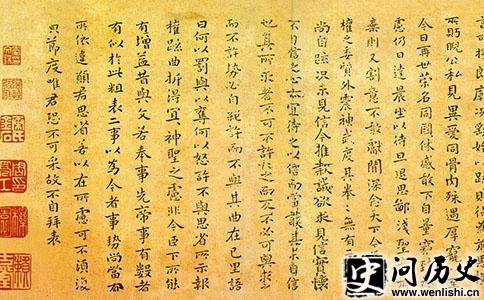 所眄睨公私見異愛同骨肉殊遇厚寵
今日再世榮名同國休慼敢不自量竊
慮仍日達晨坐以待旦退思鄙淺聖
棄則又割意不敢獻聞深念天下今
權之委質外震神武度其拳拳無有
尚自疏況未見信今推款誠欲求見信實懷
不自信之心亦宜待之以信而當護其未自信
也其所求者不可不許許之而反不必可與求之
而不許勢必自絕許而不與其曲在己里語
曰何以罰與以奪何以怒許不與思省所示報
權疏曲折得宜神聖之慮非今臣下所能
有增益昔與文若奉事先帝事有數者
有似於此粗表二事以為今者事勢尚當有
所依違願君思省若以在所慮可不須後
節度唯君恐不可采故不自拜表
史问历史
www.wenlishi.cn